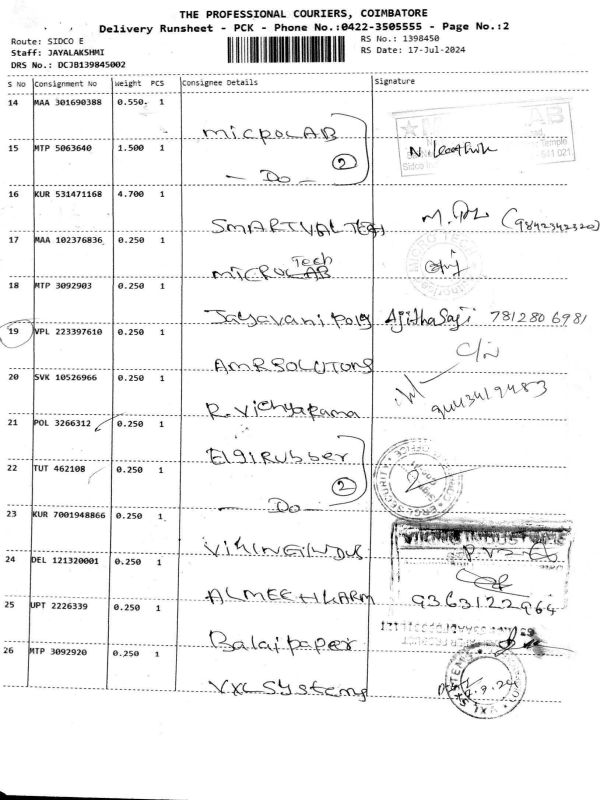 THE PROFESSIONAL COURIERS, COIMBATORE
Delivery Runsheet - PCK - Phone No.:0422-3505555 - Page No.:2
Route: SIDCO E
RS No.: 1398450
Staff: JAYALAKSHMI
RS Date: 17-Jul-2024
DRS No.: DCJB139845002
S No Consignment No Weight PCS Consignee Details Signature
14 MAA 301690388 0.550 1 MICROLAB
15 MTP 5063640 1.500 1 - Do - 2
16 KUR 531471168 4.700 1 SMARTVALTECH (9842342320)
17 MAA 102376836 0.250 1 MICROLAB Tech
18 MTP 3092903 0.250 1 Jayavani poly Ajitha Saji 781280 6981
19 VPL 223397610 0.250 1 AMRSOLUTONS
20 SVK 10526966 0.250 1 R. Vichyarama 9443419483
21 POL 3266312 0.250 1 Elgi Rubber
22 TUT 462108 0.250 1 - Do - 2
23 KUR 7001948866 0.250 1
24 DEL 121320001 0.250 1 9363122964
25 UPT 2226339 0.250 1 Balaji paper
26 MTP 3092920 0.250 1 VXL Systems